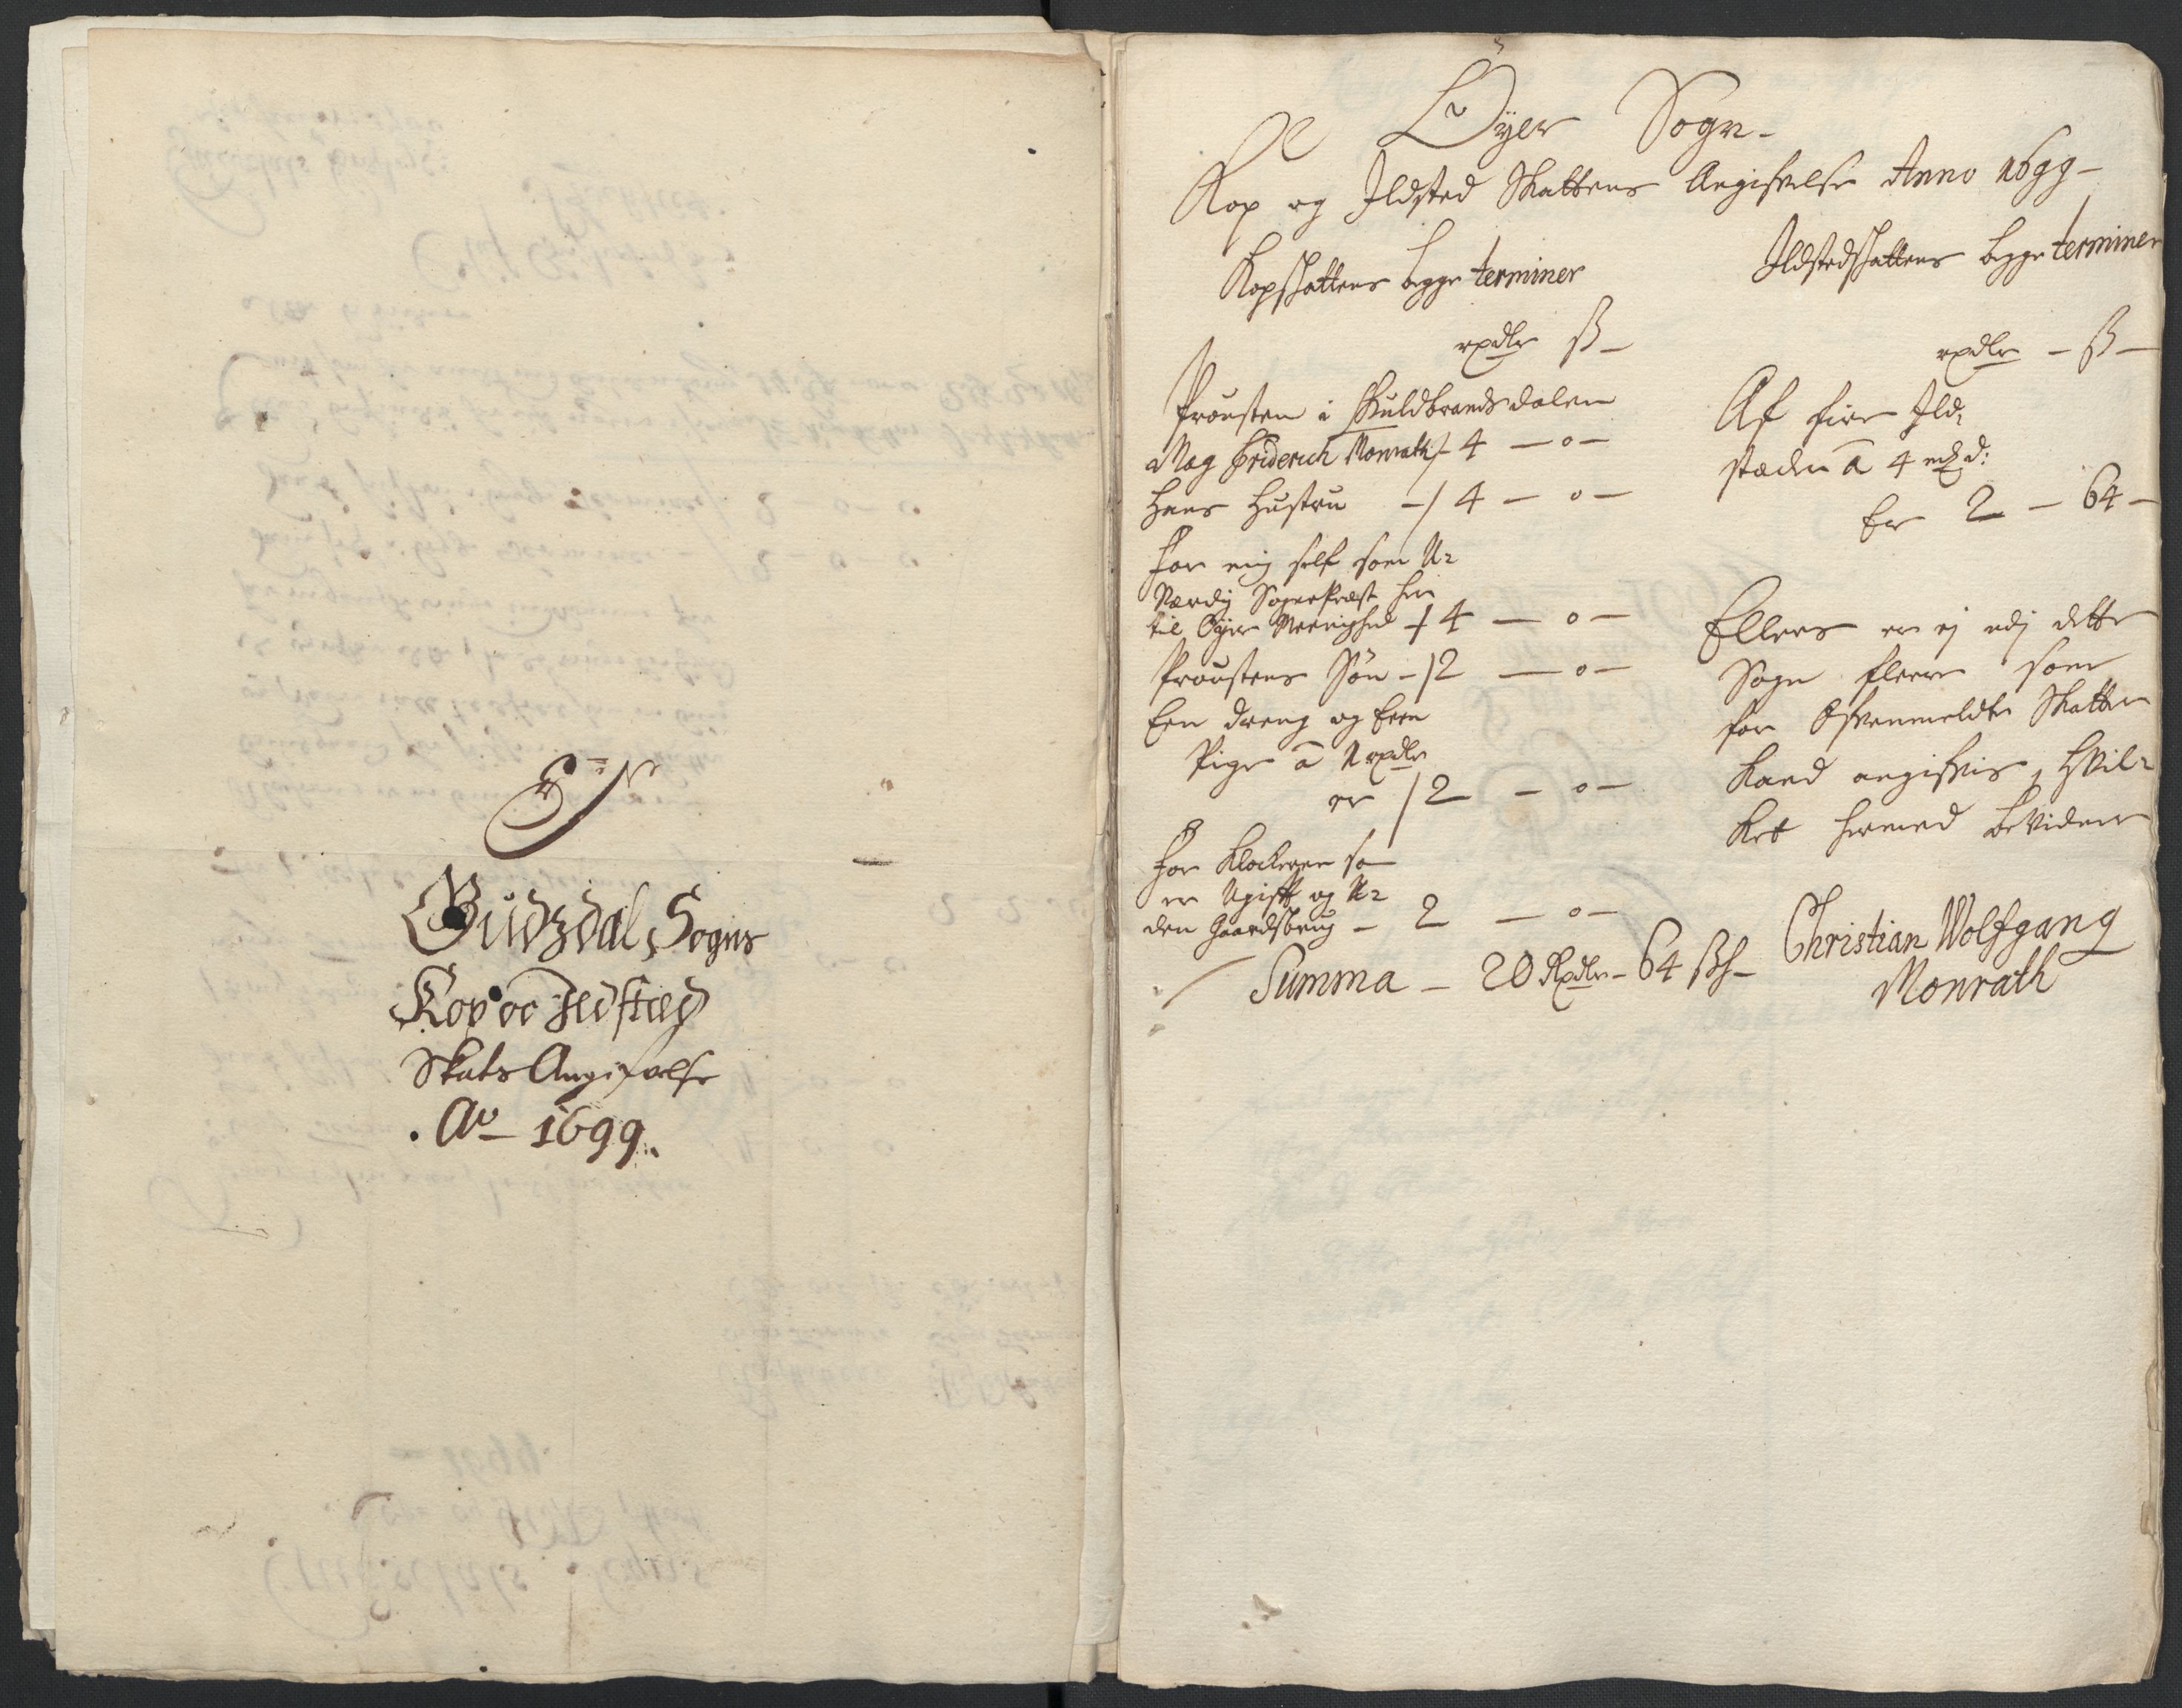 Gudzdal Sogns
Kop oc Ildsted
Skats Angifvelse
Ao 1699
Öÿer Sogn
Kop og Ildsted Skattens Angifvelse Anno 1699
Kopskattens begge terminer
rxdlr ß
Prousten i Guldbrandsdalen
Mag Friderich Monrath 4 — 0 —
Hans Hustru — 4 — 0 —
For mig self som U-
Værdig Sognepræst her
til Öÿer Meenighed 4 — 0 —
Proustens Sön — 2 — 0 —
Een dreng og Een
Pige â 1 rxdlr
er 2 — 0 —
For Klockeren som
er Ugift og U-
den Gaardsbrug — 2 — 0 —
Summa — 20 Rxdlr — 64 ßh —
Ildstedskattens begge terminer
rxdlr — ß —
Af fire Ild-
stæder â 4 d:
Er 2 — 64 —
Ellers er ej udj dette
Sogn fleere som
for Ofvenmeldte Skatter
Kand angifvis, Hvil-
Ket hermed beVidner
Christian Wolfgang
Monrath